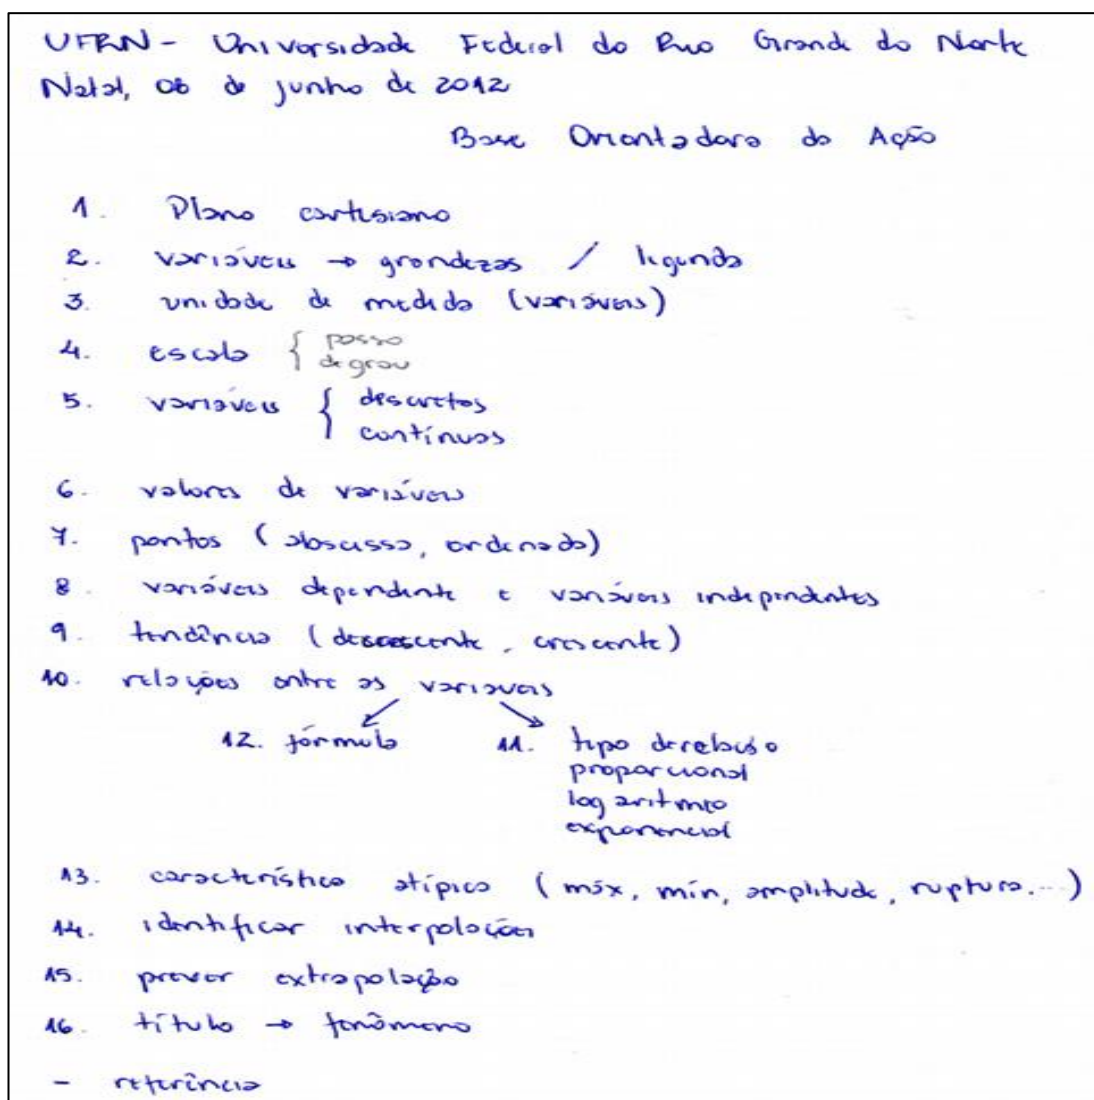 UFRN - Universidade Federal do Rio Grande do Norte
Natal, 08 de junho de 2012
Base Orientadora da Ação
1. Plano cartesiano
2. variáveis → grandezas / legenda
3. unidade de medida (variáveis)
4. escala { passo
degrau
5. variáveis { discretas
contínuas
6. valores de variáveis
7. pontos (abscissa, ordenada)
8. variáveis dependente e variáveis independentes
9. tendência (decrescente, crescente)
10. relações entre as variáveis
12. fórmula 11. tipo de relação
proporcional
logaritmo
exponencial
13. característica atípica (máx, mín, amplitude, ruptura...)
14. identificar interpolação
15. prever extrapolação
16. título → fenômeno
- referência